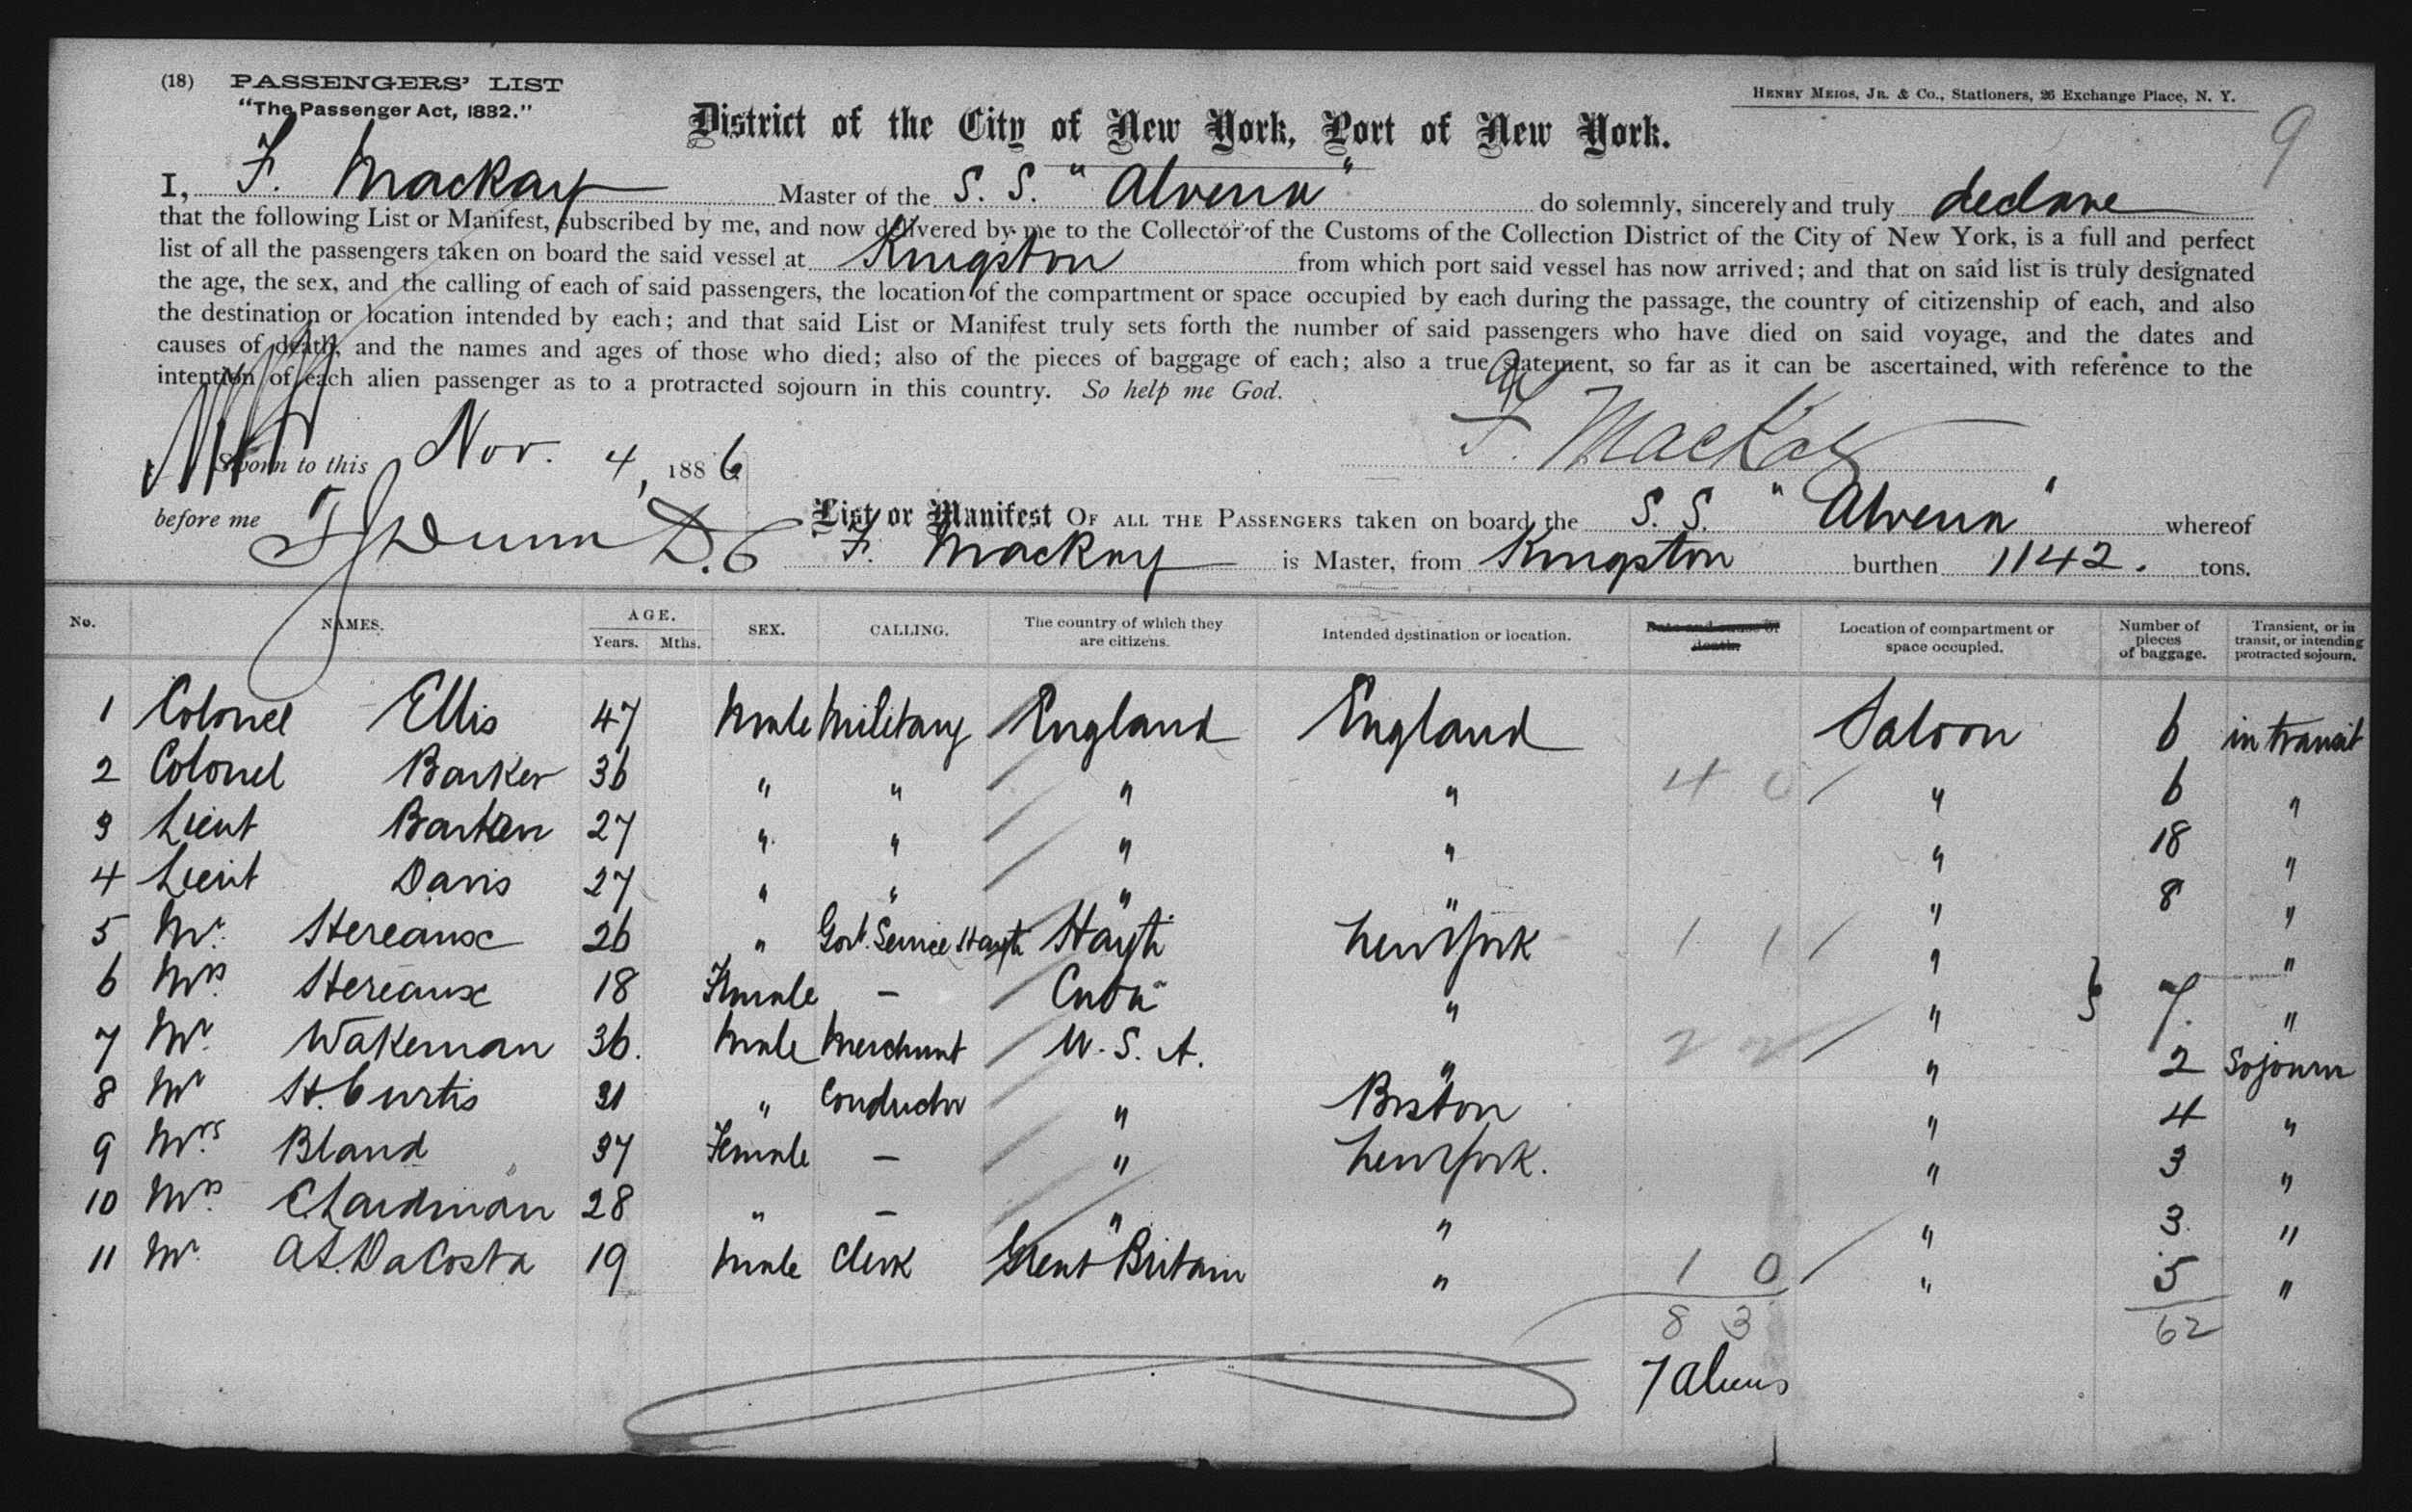 (18) PASSENGERS' LIST
"The Passenger Act, 1882."
HENRY MEIGS, JR. & CO., Stationers, 26 Exchange Place, N. Y.
9
District of the City of New York, Port of New York.
I, F. Mackay Master of the S. S. "Alvena" do solemnly, sincerely and truly declare
that the following List or Manifest, subscribed by me, and now delivered by me to the Collector of the Customs of the Collection District of the City of New York, is a full and perfect
list of all the passengers taken on board the said vessel at Kingston from which port said vessel has now arrived; and that on said list is truly designated
the age, the sex, and the calling of each of said passengers, the location of the compartment or space occupied by each during the passage, the country of citizenship of each, and also
the destination or location intended by each; and that said List or Manifest truly sets forth the number of said passengers who have died on said voyage, and the dates and
causes of death, and the names and ages of those who died; also of the pieces of baggage of each; also a true statement, so far as it can be ascertained, with reference to the
intention of each alien passenger as to a protracted sojourn in this country. So help me God.
F. MacKay
Sworn to this Nov. 4, 1886
before me Dunn D.C
List or Manifest OF ALL THE PASSENGERS taken on board the S. S. "Alvena" whereof
F. Mackay is Master, from Kingston burthen 1142. tons.
No. NAMES. AGE. Years. Mths. SEX. CALLING. The country of which they are citizens. Intended destination or location. Date and cause of death. Location of compartment or space occupied. Number of pieces of baggage. Transient, or in transit, or intending protracted sojourn.
1 Colonel Ellis 47 Male Military England England Saloon 6 in transit
2 Colonel Barker 36 " " " " 4 0 " 6 "
3 Lieut Barken 27 " " " " " 18 "
4 Lieut Davis 27 " " " " " 8 "
5 Mr. Hereaux 26 " Govt. Service Hayti Hayti New York 1 1 " "
6 Mrs. Hereaux 18 Female – Cuba " " } 7. "
7 Mr. Wakeman 36. Male Merchant U. S. A. " 2 2 " 2 Sojourn
8 Mr H. Curtis 31 " Conductor " Boston " 4 "
9 Mrs. Bland 37 Female – " New York. " 3 "
10 Mrs. 28 " – " " " 3. "
11 Mr. DaCosta 19 Male Clerk Great Britain " 1 0 " 5 "
8 3 62
7 aliens